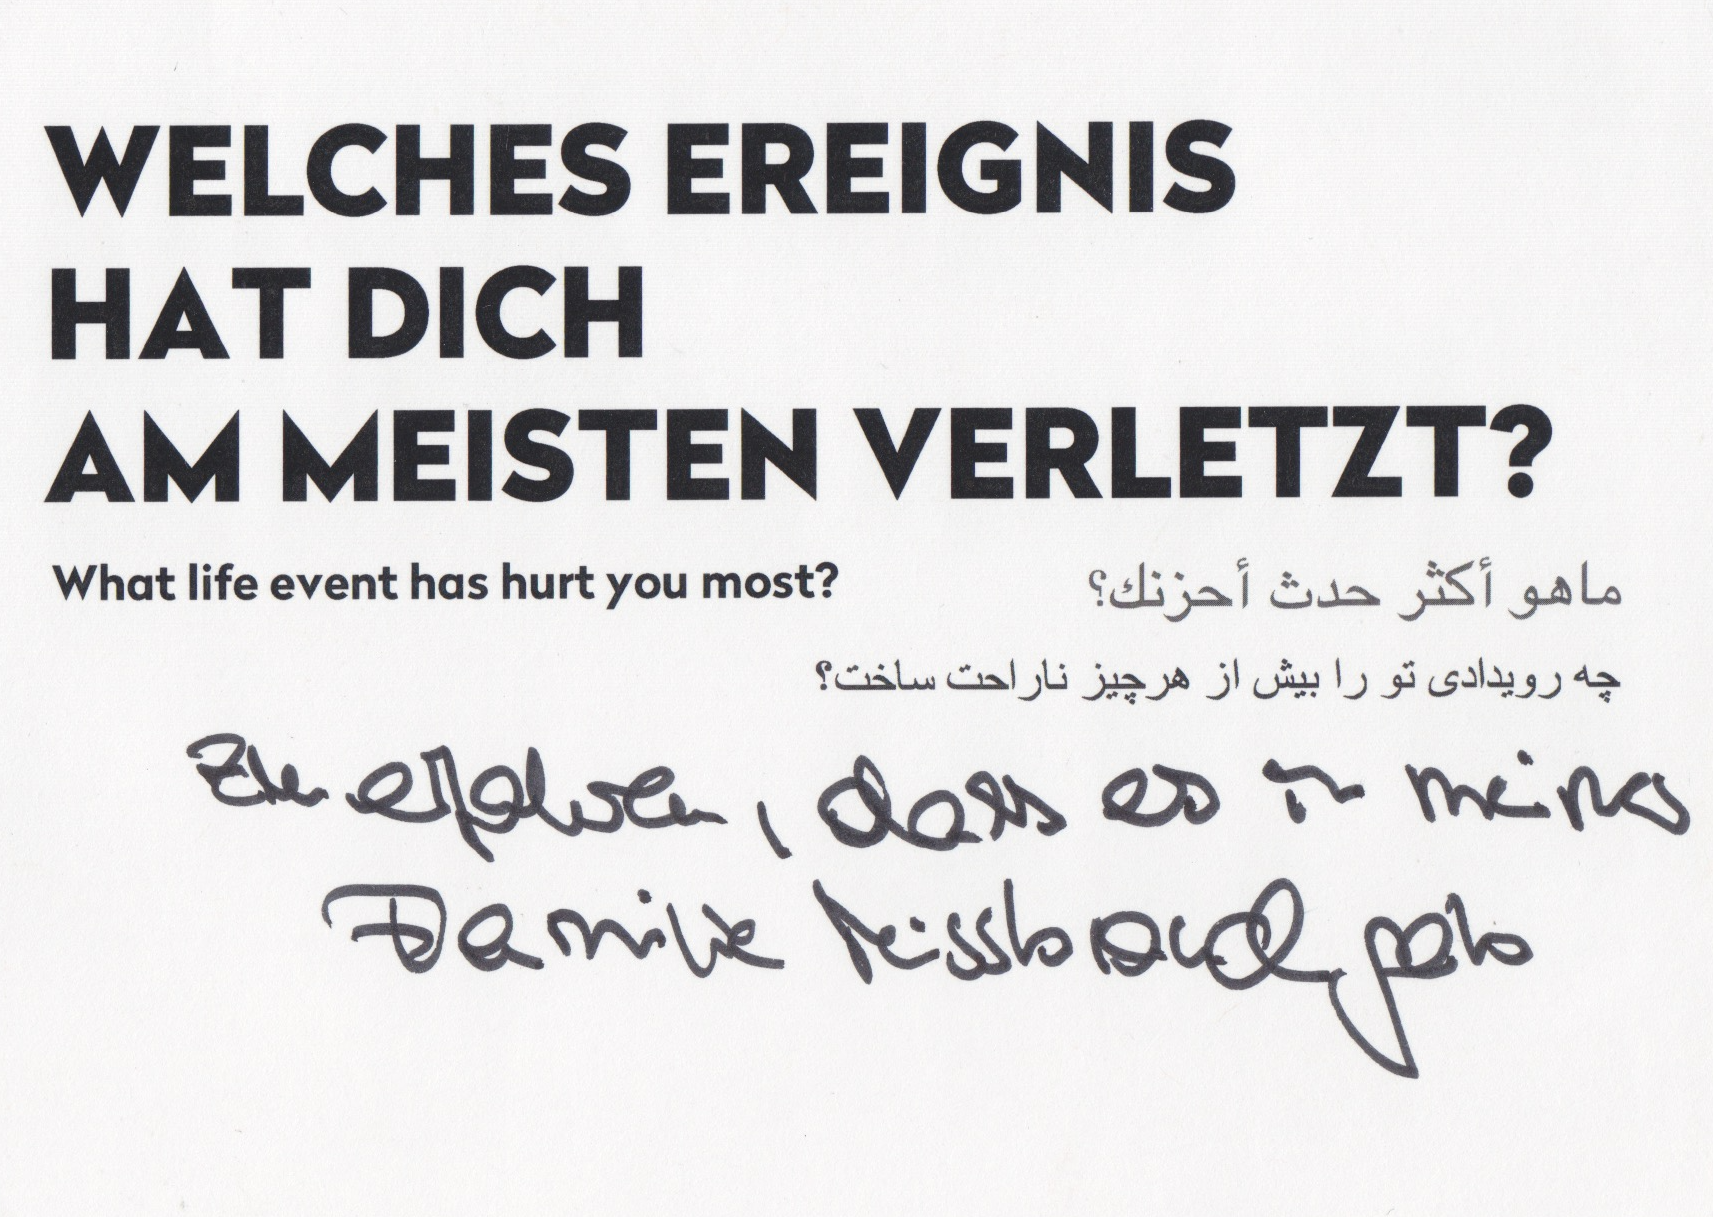 WELCHES EREIGNIS
HAT DICH
AM MEISTEN VERLETZT?
What life event has hurt you most?
ماهو أكثر حدث أحزنك؟
چه رویدادی تو را بیش از هرچیز ناراحت ساخت؟
Zu erfahren, dass es in meiner
Familie Missbrauch gab